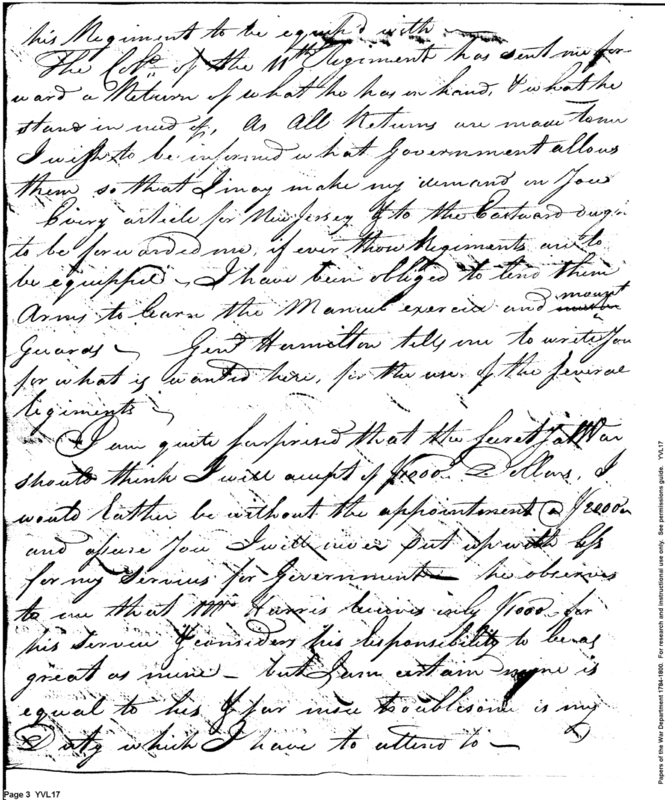 his Regiment to be equip'd with —
The Colo. of the 11th Regiment has sent me for-
ward a Return of what he has in hand, & what he
stands in need of, As All Returns are made to me
I wish to be informed what Government allows
them so that I may make my demand on You
Every article for New Jersey & to the Eastward ought
to be forwarded me, if ever those Regiments are to
be equipped — I have been obliged to lend them
Arms to learn the Manual exercise and mount
Guards — Genl Hamilton tells me to write You
for what is wanted here, for the use of the several
regiments —
I am quite surprised that the Secret'y at War
should think I will accept of $1000 Dollars, I
would Rather be without the appointment @ $2000
and assure You I will never put up with less
for my services for Government — he observes
to me that Mr Harris receives only $1000 for
his service & considers his responsibility to be as
great as mine — but I am certain mine is
equal to his & far more troublesome is my
Duty which I have to attend to —
Page 3 YVL17
Papers of the War Department 1784-1800. For research and instructional use only. See permissions guide. YVL17